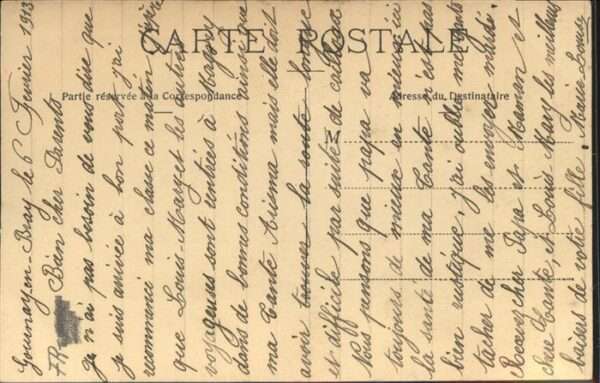 CARTE POSTALE
Partie réservée à la Correspondance
Adresse du Destinataire
Gournay-en-Bray le 6 Février 1913
Bien Cher Parents
Je n'ai pas besoin de vous dire que
je suis arrivée à bon port, j'ai
recommencé ma classe ce matin
que Louis-Mary et les autres
voyageuses sont rentrées à
dans de bonnes conditions ainsi que
ma Tante mais elle doit
avoir trouver la route longue
et difficile par suite de
Nous pensons que papa va
toujours de mieux en mieux ici
la santé de ma Tante n'est pas
bien rustique, j'ai oublié mes
tacher de me les envoyer
Recevez cher Papa et Maman et
chère Tante, et Louis Mary les meilleurs
baisers de votre fille. Marie-Louise